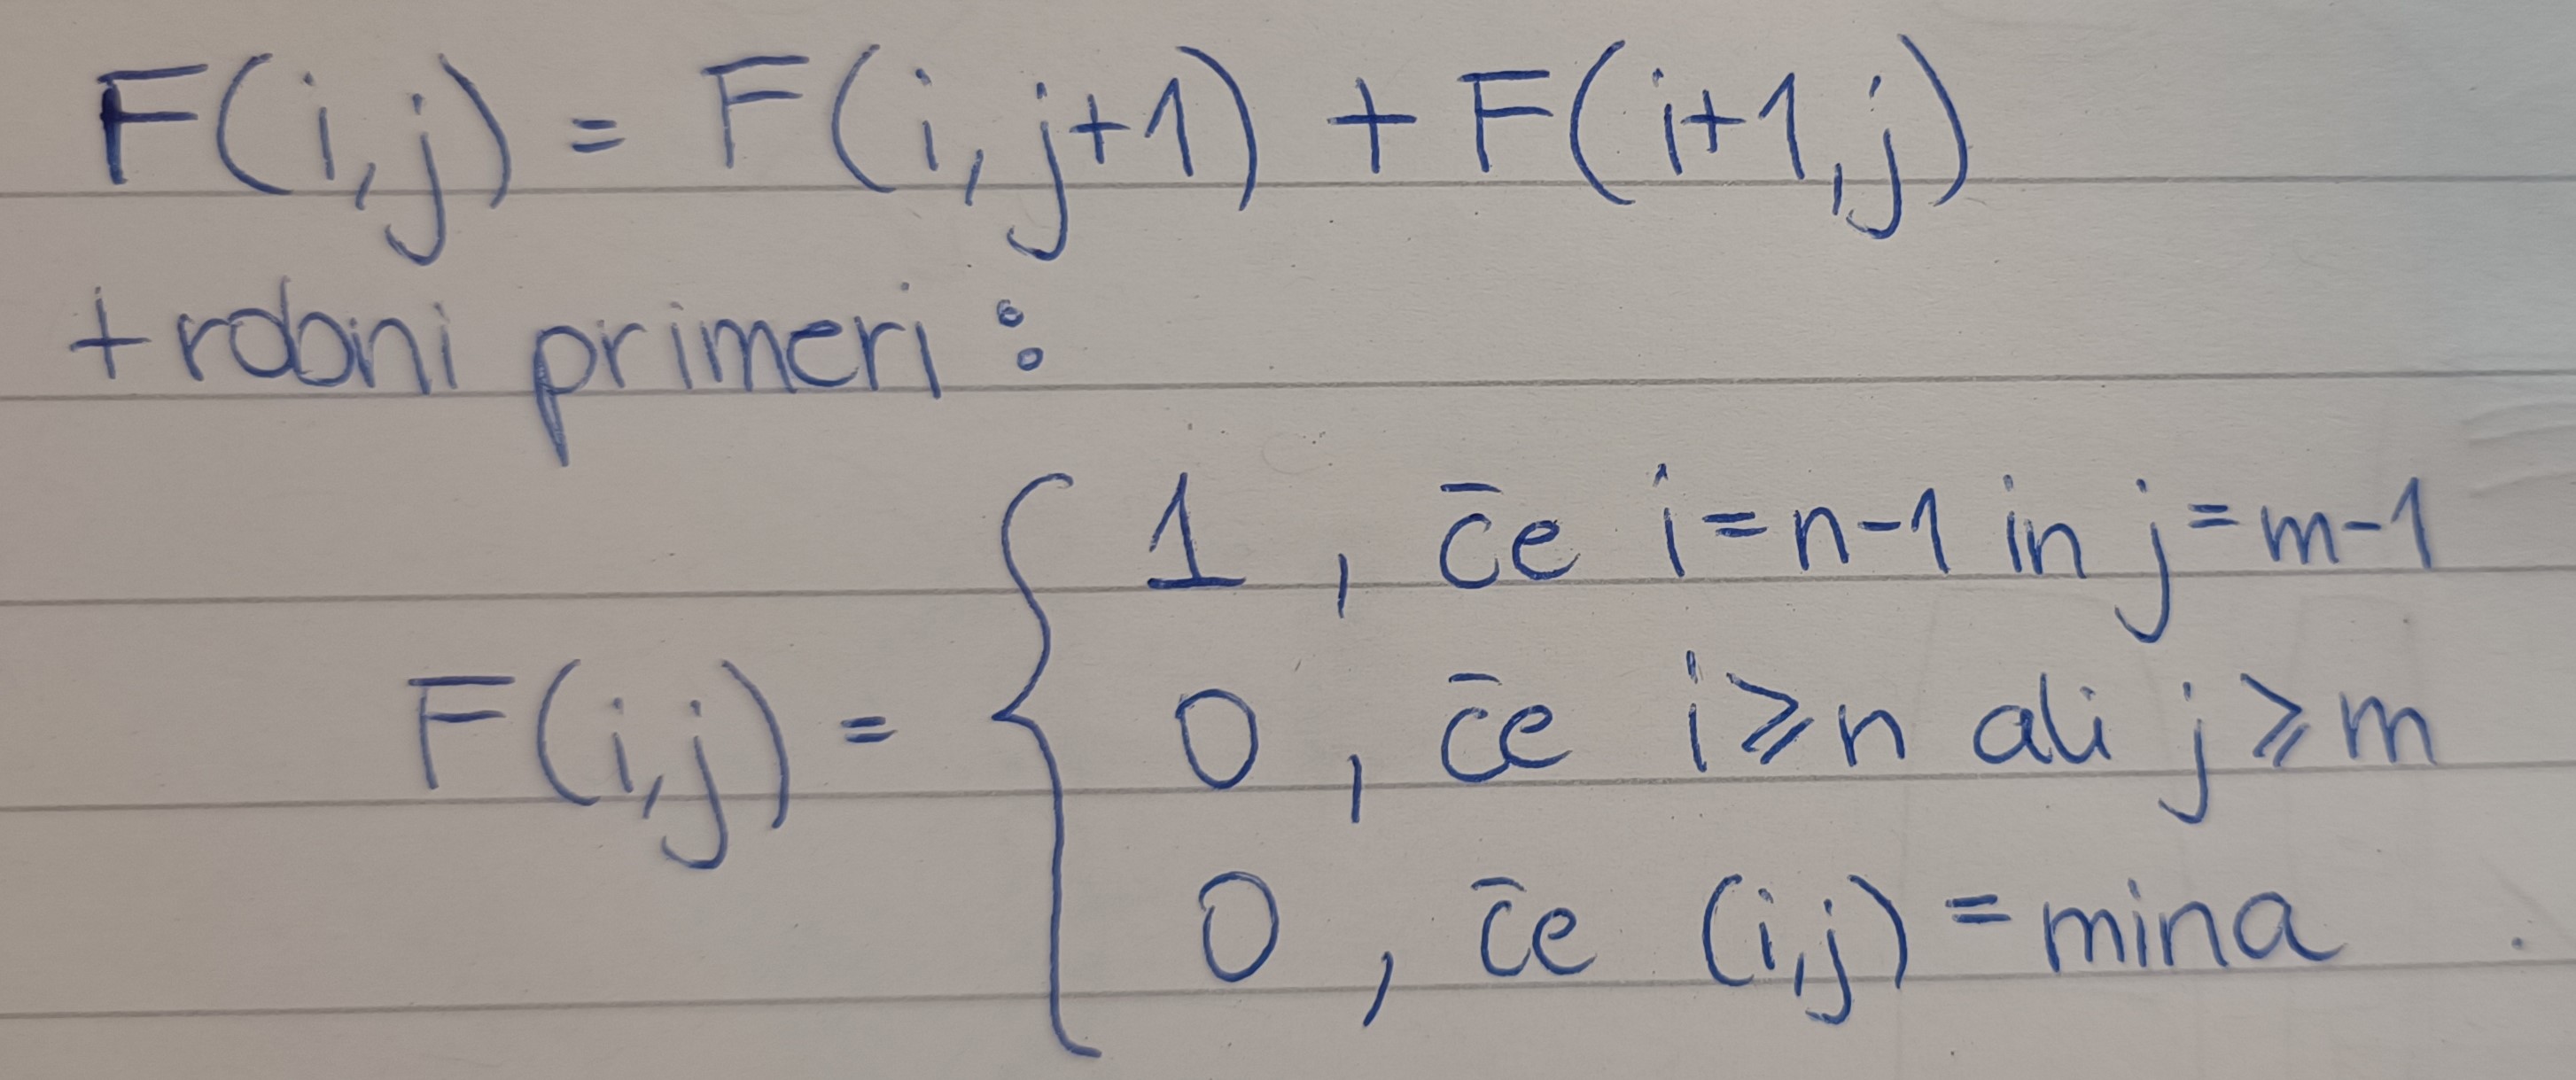 F(i,j) = F(i,j+1) + F(i+1,j)
+ robni primeri:
1, če i=n-1 in j=m-1
F(i,j) = { 0, če i⩾n ali j⩾m
0, če (i,j) = mina